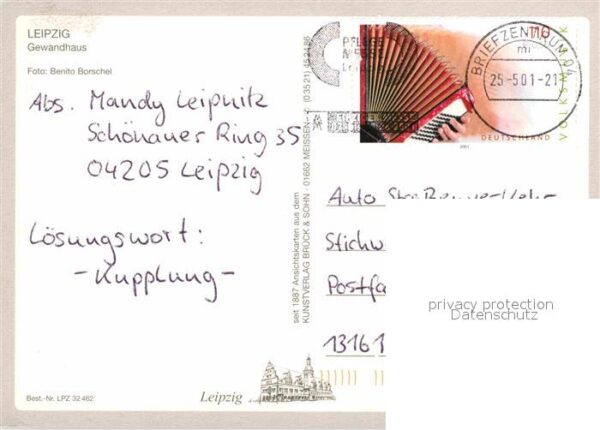 LEIPZIG
Gewandhaus
Foto: Benito Borschel
Abs. Mandy Leipnitz
Schönauer Ring 35
04205 Leipzig
Lösungswort:
-Kupplung-
Best.-Nr. LPZ 32 462
Leipzig
seit 1887 Ansichtskarten aus dem
KUNSTVERLAG BRÜCK & SOHN · 01662 MEISSEN
110
DEUTSCHLAND
2001
BRIEFZENTRUM 04
mi
25-5.01-21
Auto Straßenverkehr
Stichw
Postfa
13161
privacy protection
Datenschutz